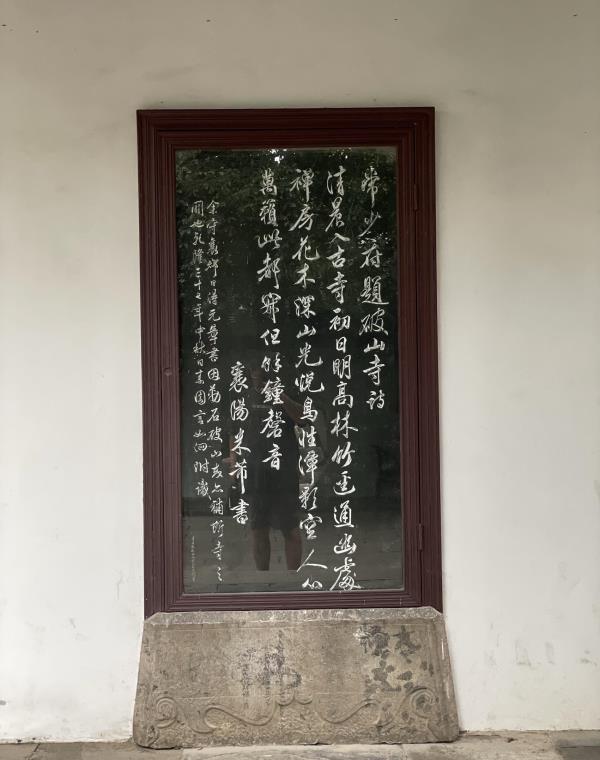 常少府題破山寺詩
清晨入古寺初日明高林竹逕通幽處
禪房花木深山光悅鳥性潭影空人心
萬籟此都寂但餘鐘磬音
襄陽米芾書
余守襄陽日得元章書因勒石破山亦補斯寺之
闕也乾隆三十七年中秋日素園言如泗附識